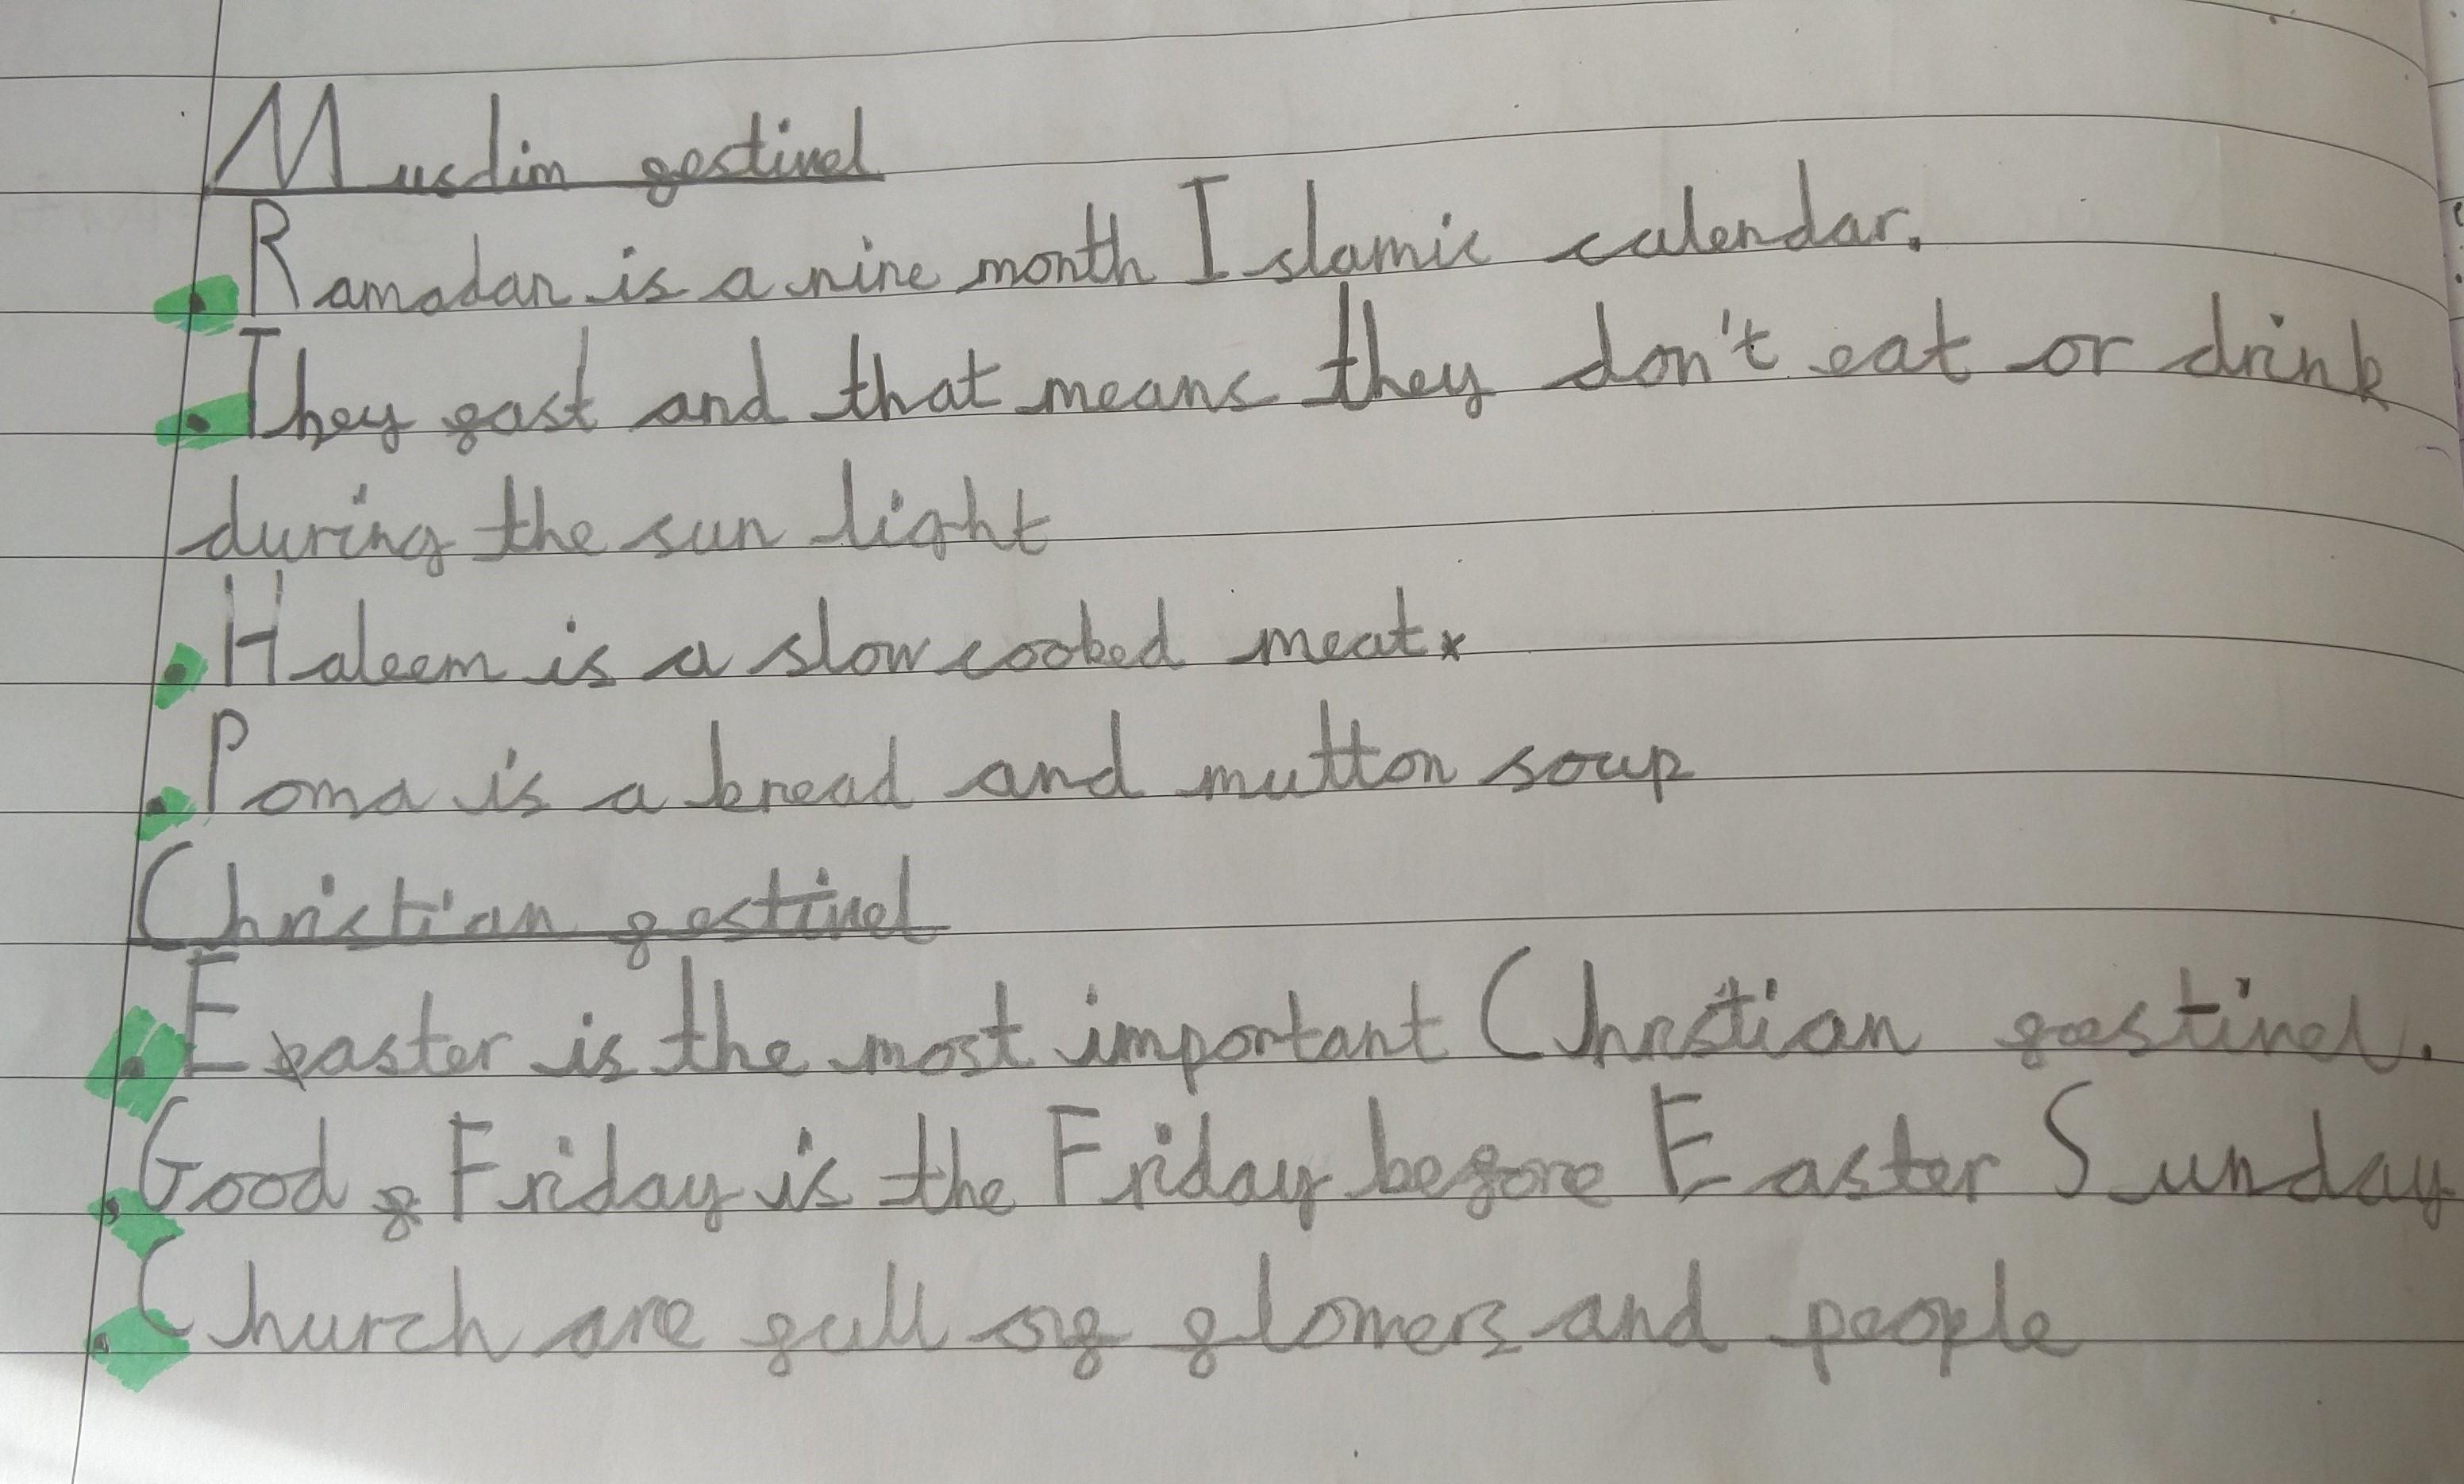 Muslim festivel
. Ramadan is a nine month Islamic calendar.
. They fast and that means they don't eat or drink
during the sun light
. Haleem is a slow cooked meat
. Poma is a bread and mutton soup
Christian festivel
. Easter is the most important Christian festivel.
. Good Friday is the Friday before Easter Sunday
. Church are full of flowers and people